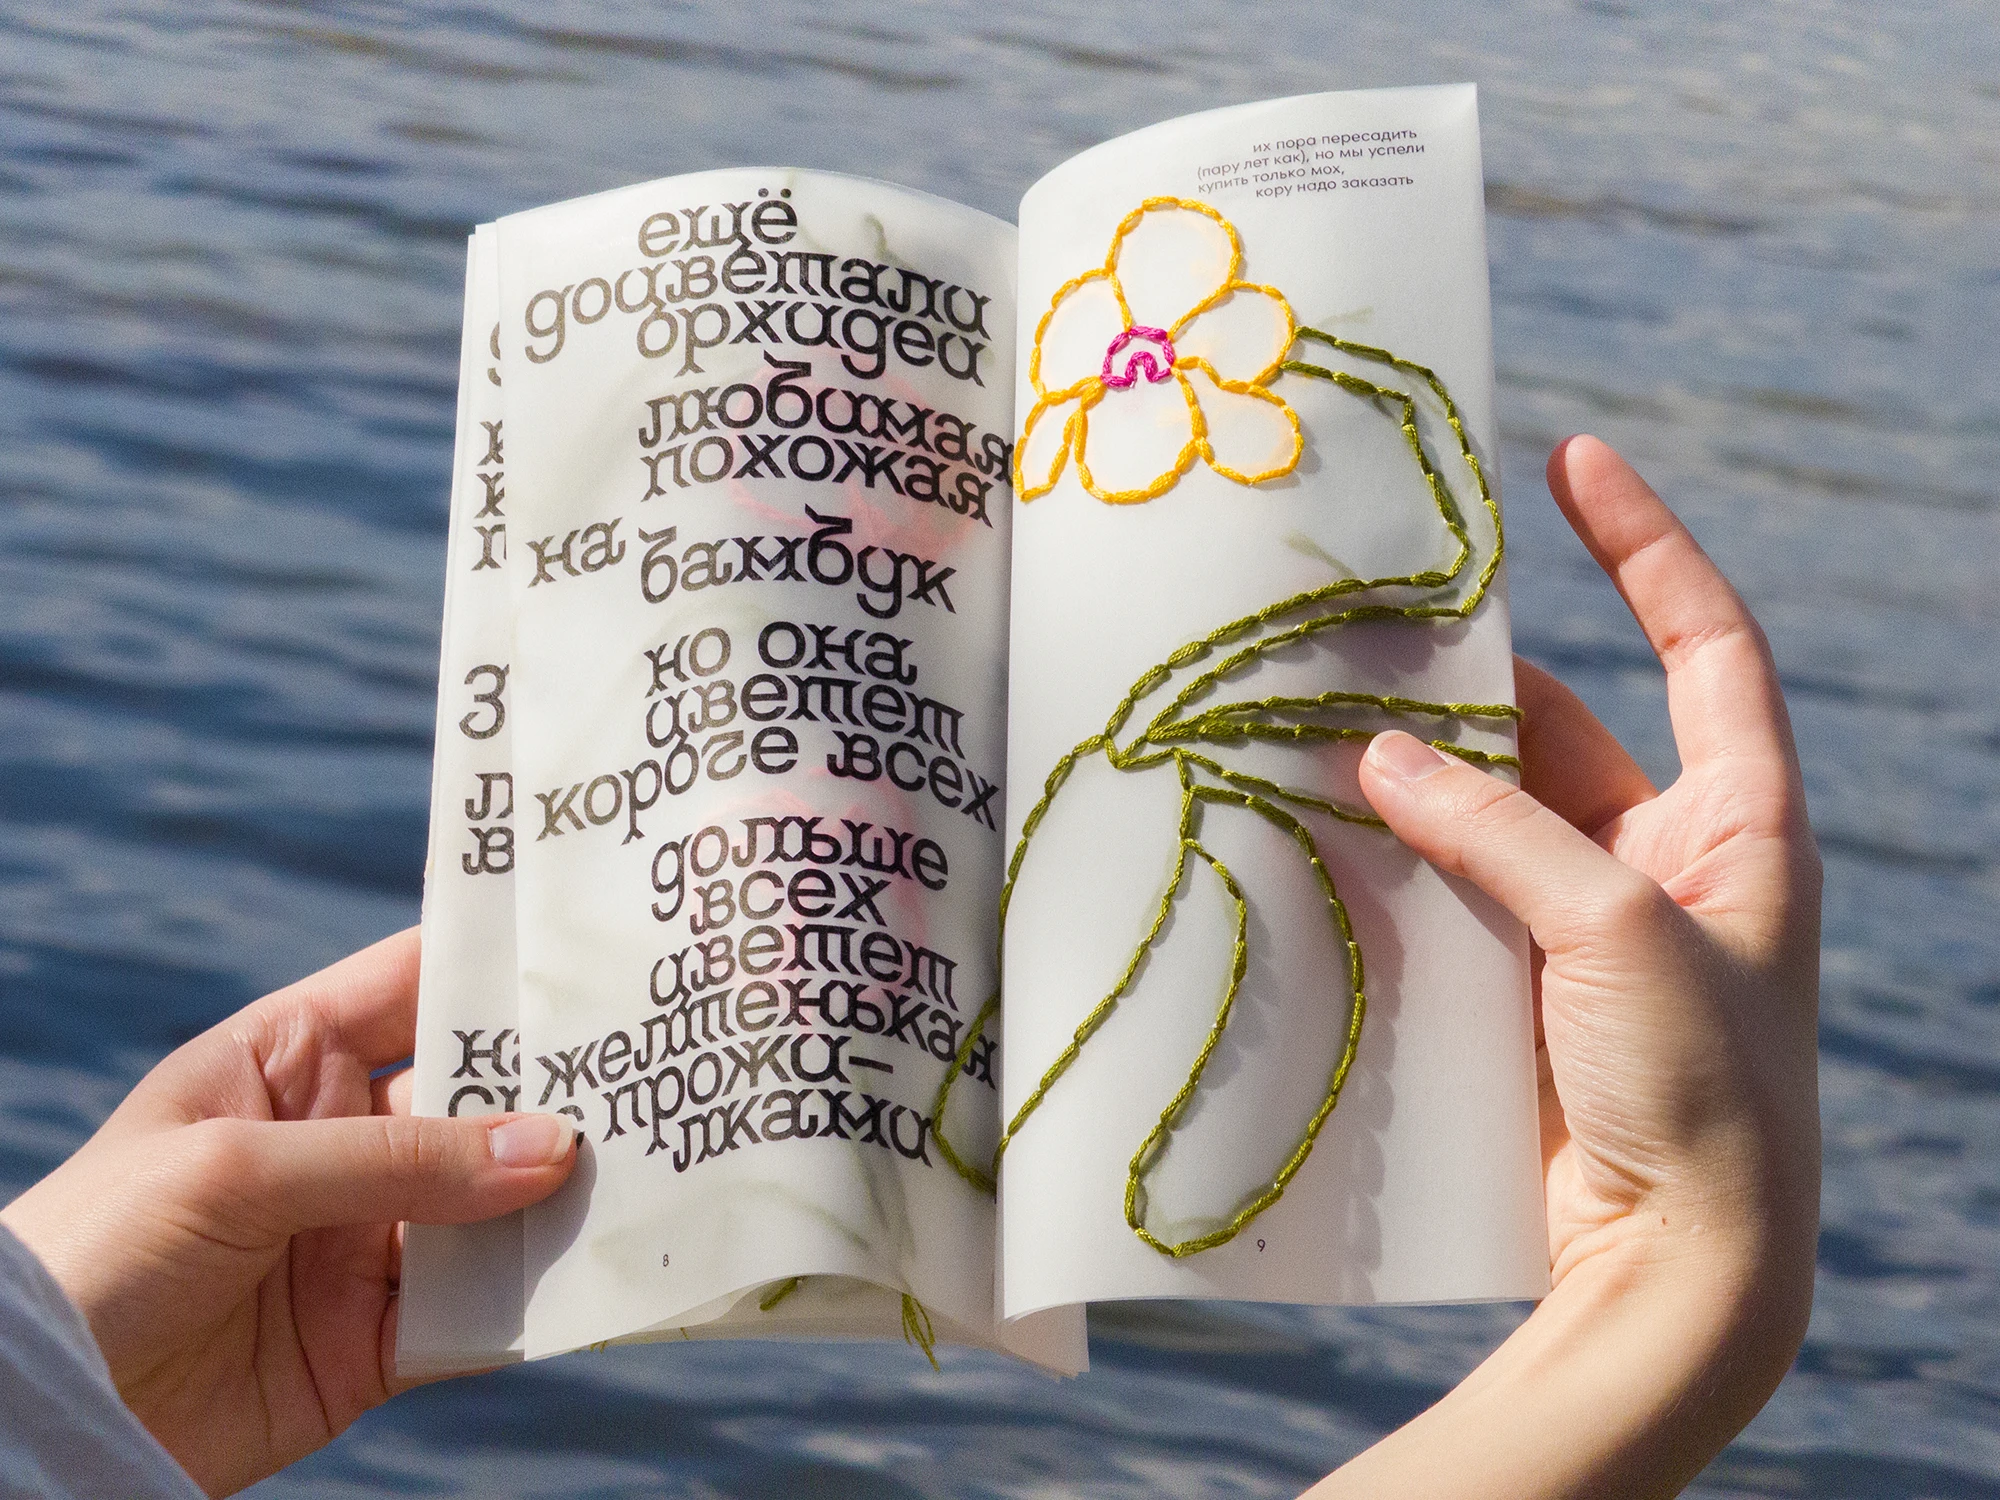 ещё
доцветали
орхидеи
любимая
похожая
на бамбук
но она
цветет
короче всех
дольше
всех
цветет
желтенькая
с прожи–
лками
8
их пора пересадить
(пару лет как), но мы успели
купить только мох,
кору надо заказать
9